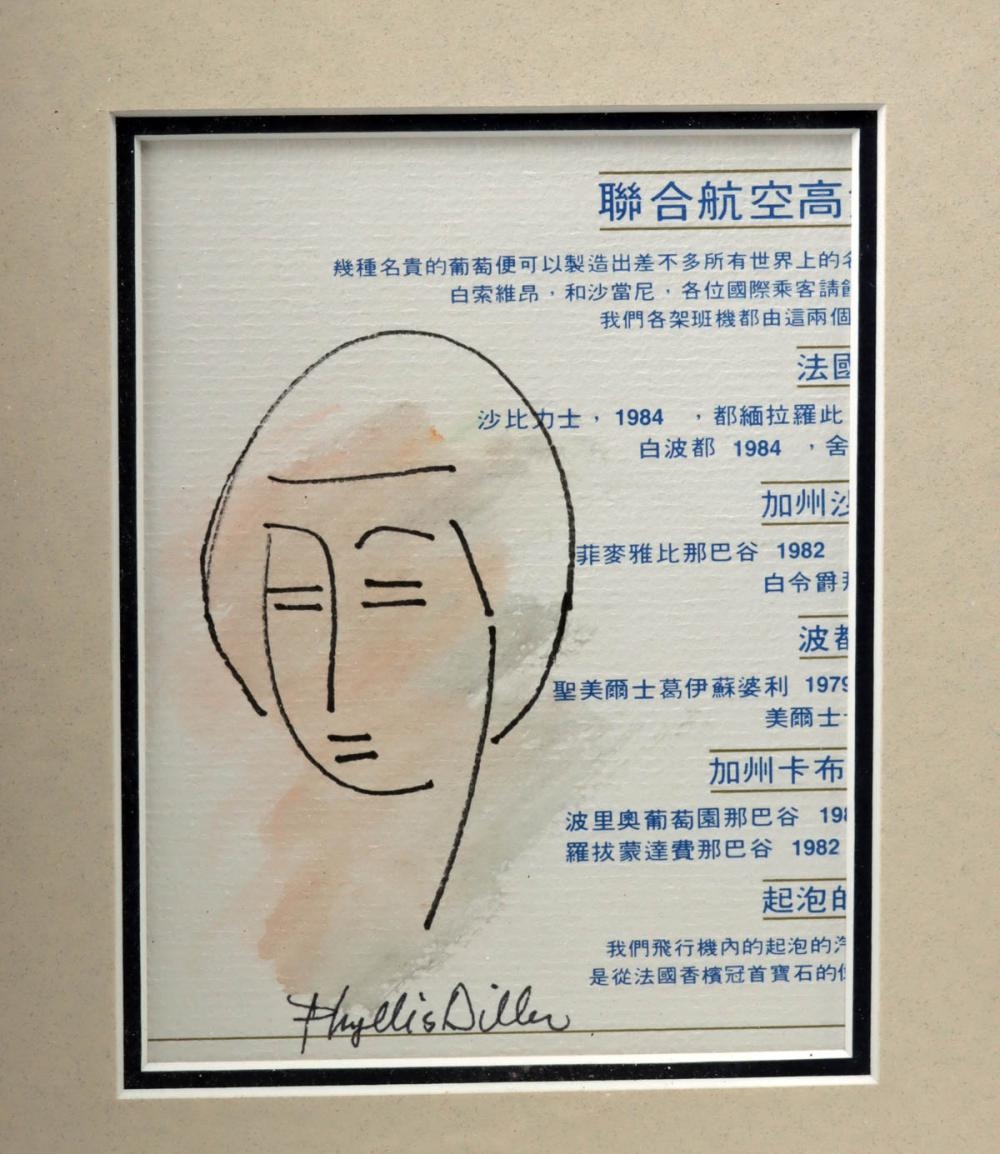 聯合航空高
幾種名貴的葡萄便可以製造出差不多所有世界上的名
白索維昂,和沙當尼,各位國際乘客請
我們各架班機都由這兩個
法國
沙比力士, 1984 ,都緬拉羅此
白波都 1984 ,舍
加州沙
菲麥雅比那巴谷 1982
白令爵那
波都
聖美爾士葛伊蘇婆利 1979
美爾士
加州卡布
波里奧葡萄園那巴谷 198
羅拔蒙達費那巴谷 1982
起泡的
我們飛行機內的起泡的汽
是從法國香檳冠首寶石的
Phyllis Diller